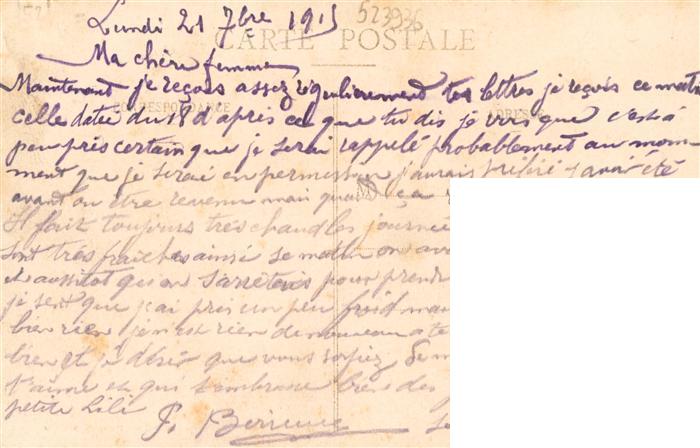 523936
Lundi 21 7bre 1915
CARTE POSTALE
Ma chère femme
Maintenant je reçois assez régulierement tes lettres je reçois ce matin
CORRESPONDANCE
celle datée du 18 d'après ce que tu dis je vois que c'est à
peu près certain que je serai rappelé probablement au mom-
ment que je serai en permission j'aurais préféré avoir été
avant ou être revenu mais quan ça
Il fait toujours très chaud les journée
sont très fraiches ainsi ce matin on av
et aussitot qu'on s'arrêtais pour prend
je sent que j'ai pris un peu froid mai
bien rien je n'est rien de nouveau a te
bien et je désir que vous soyiez de m
t'aime et qui t'embrasse bien des
petite Lili